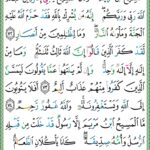 ٱللَّهَ رَبِّى وَرَبَّكُمْ إِنَّهُۥ مَن يُشْرِكْ بِٱللَّهِ فَقَدْ حَرَّمَ ٱللَّهُ عَلَيْهِ
ٱلْجَنَّةَ وَمَأْوَىٰهُ ٱلنَّارُ وَمَا لِلظَّٰلِمِينَ مِنْ أَنصَارٍ ٧٢
لَّقَدْ كَفَرَ ٱلَّذِينَ قَالُوٓا۟ إِنَّ ٱللَّهَ ثَالِثُ ثَلَٰثَةٍ وَمَا مِنْ
إِلَٰهٍ إِلَّآ إِلَٰهٌ وَٰحِدٌ وَإِن لَّمْ يَنتَهُوا۟ عَمَّا يَقُولُونَ لَيَمَسَّنَّ
ٱلَّذِينَ كَفَرُوا۟ مِنْهُمْ عَذَابٌ أَلِيمٌ ٧٣ أَفَلَا يَتُوبُونَ
إِلَى ٱللَّهِ وَيَسْتَغْفِرُونَهُۥ وَٱللَّهُ غَفُورٌ رَّحِيمٌ ٧٤
مَّا ٱلْمَسِيحُ ٱبْنُ مَرْيَمَ إِلَّا رَسُولٌ قَدْ خَلَتْ مِن قَبْلِهِ
ٱلرُّسُلُ وَأُمُّهُۥ صِدِّيقَةٌ كَانَا يَأْكُلَانِ ٱلطَّعَامَ